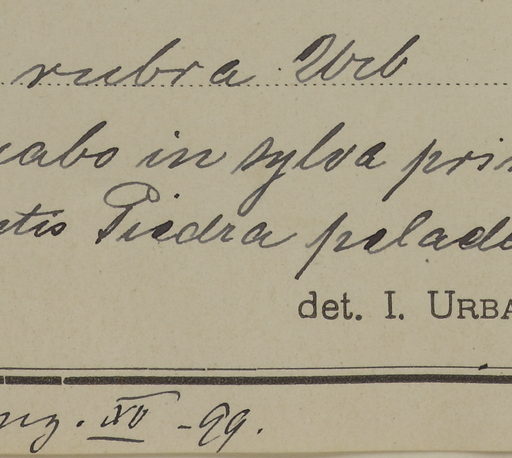 rubra Urb
cabo in sylva pri
tis Piedra pelada
det. I. URBA
nz. XV -99.